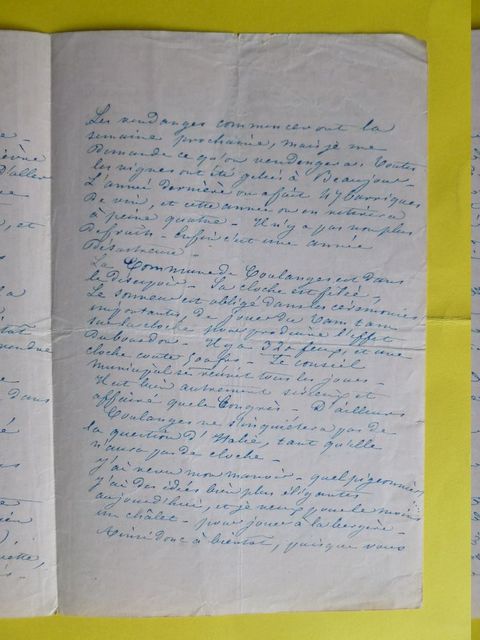 Les vendanges commenceront la
semaine prochaine, mais je me
demande ce qu'on vendangera. Toutes
les vignes ont été gelées à Beaujou
L'année dernière on a fait 47 barriques
De vin, et cette année on en retirera
à peine quatre - Il n'y a pas non plus
De fruits - Enfin c'est une année
Désastreuse -
La Commune de Coulanges est dans
le désespoir - La cloche est fêlée -
Le sonneur est obligé dans les cérémonies
importantes, de jouer du tam tam
sur la cloche pour produire l'effet
Du bourdon - Il y a feux, et une
cloche coute - Le conseil
municipal se réunit tous les jours -
Il est bien autrement sérieux et
affairé que le Congrès - D'ailleurs
Coulanges ne s'inquiétera pas de
la question d'Italie, tant qu'elle
n'aura pas de cloche -
J'ai revu mon manoir - quel pigeonnier,
J'ai des idées bien plus élégantes
aujourd'hui, et je veux pour le moins
un châlet - pour jouer à la bergère -
Ainsi donc à bientot, puisque vous
ièvre
D'aller
et
la
dans